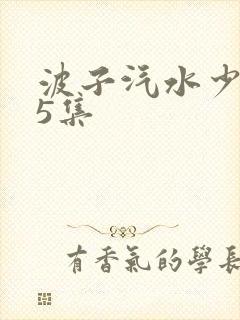 波子汽水少
5集
有香氣的學長